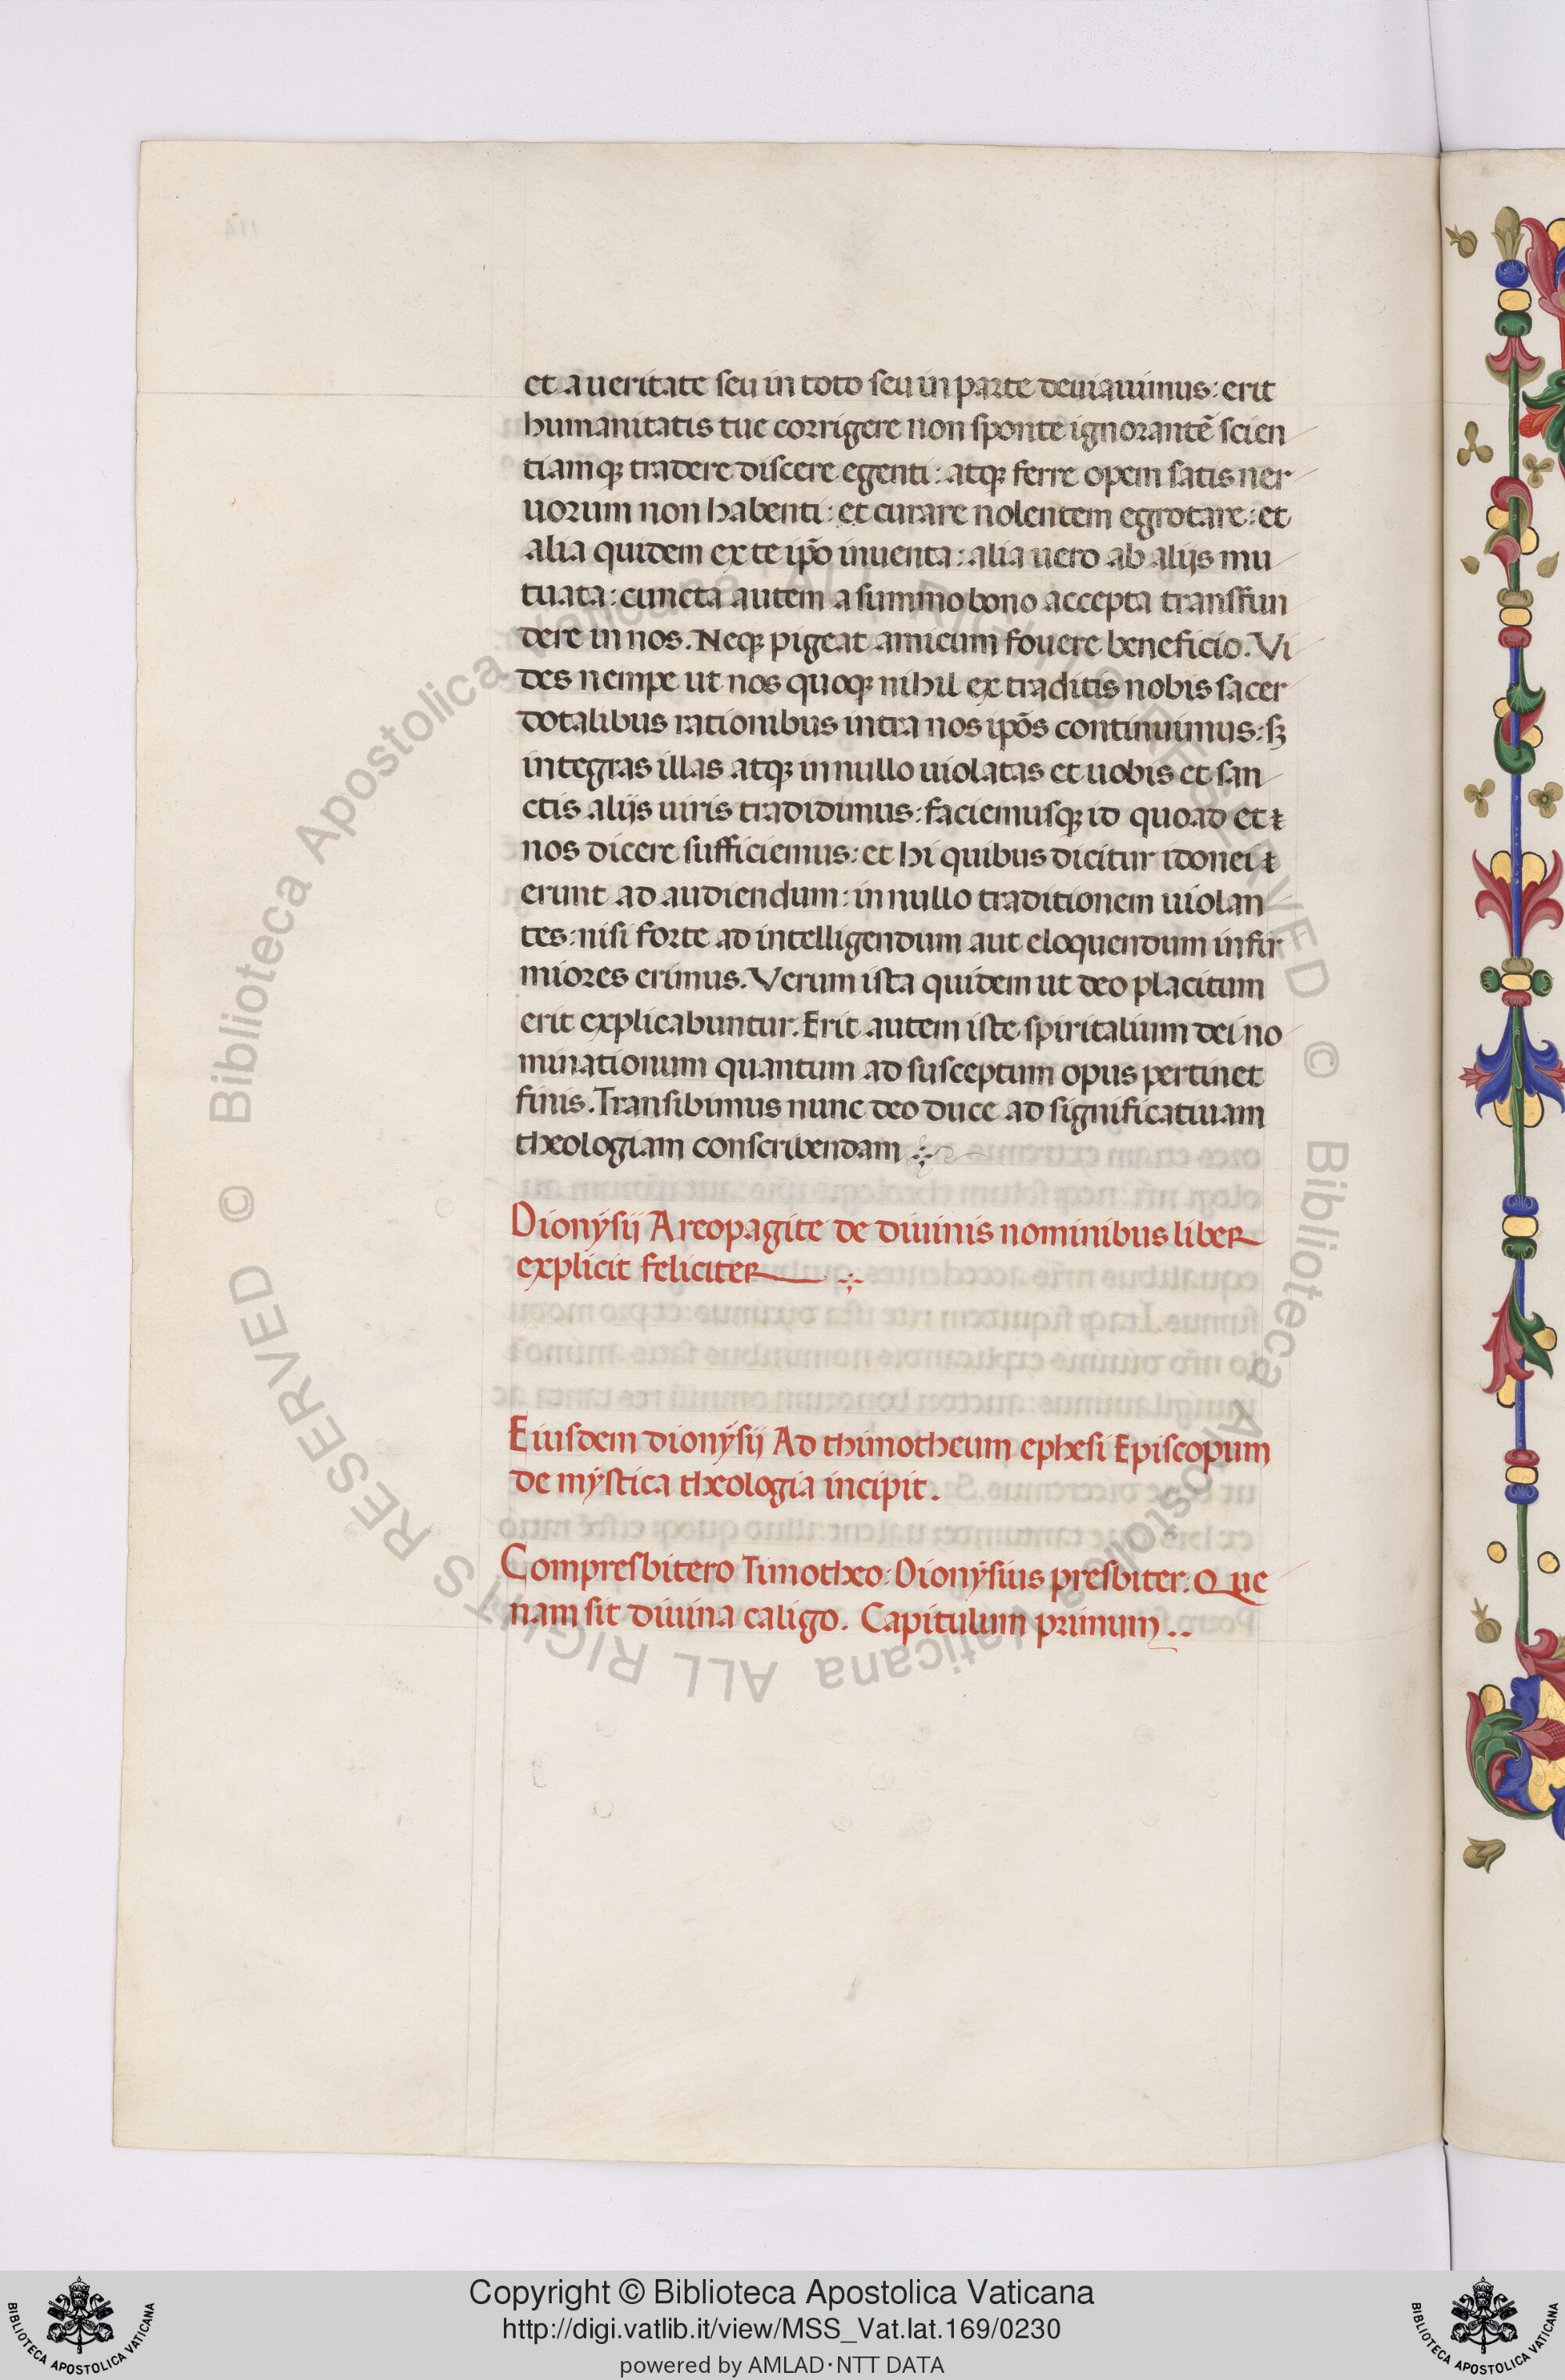 et a ueritate seu in toto seu in parte deuiauimus: erit
humanitatis tue corrigere non sponte ignorantē scien
tiamqꝫ tradere discere egenti: atqꝫ ferre opem satis ner
uorum non habenti: et curare nolentem egrotare: et
alia quidem ex te ip̄o inuenta: alia uero ab alijs mu
tuata: cuncta autem a summo bono accepta transfun
dere in nos. Neqꝫ pigeat amicum fouere beneficio. Vi
des nempe ut nos quoqꝫ nihil ex traditis nobis sacer
dotalibus rationibus intra nos ip̄os continuimus: sꝫ
integras illas atqꝫ in nullo uiolatas et uobis et san
ctis alijs uiris tradidimus: faciemusqꝫ id quoad et
nos dicere sufficiemus: et hi quibus dicitur idonei
erunt ad audiendum: in nullo traditionem uiolan
tes: nisi forte ad intelligendum aut eloquendum infir
miores erimus. Verum ista quidem ut deo placitum
erit explicabuntur. Erit autem iste spiritalium dei no
minationum quantum ad susceptum opus pertinet
finis. Transibimus nunc deo duce ad significatiuam
theologiam conscribendam
Dionẏsij Areopagite de diuinis nominibus liber
explicit feliciter
Eiusdem dionẏsij Ad thimotheum ephesi Episcopum
de mẏstica theologia incipit.
Compresbitero Timotheo: Dionẏsius presbiter. Que
nam sit diuina caligo. Capitulum primum..
© Biblioteca Apostolica Vaticana ALL RIGHTS RESERVED © Biblioteca Apostolica Vaticana ALL RIGHTS RESERVED
Copyright © Biblioteca Apostolica Vaticana
http://digi.vatlib.it/view/MSS_Vat.lat.169/0230
powered by AMLAD·NTT DATA
BIBLIOTECA APOSTOLICA VATICANA
BIBLIOTECA APOSTOLICA VATICANA